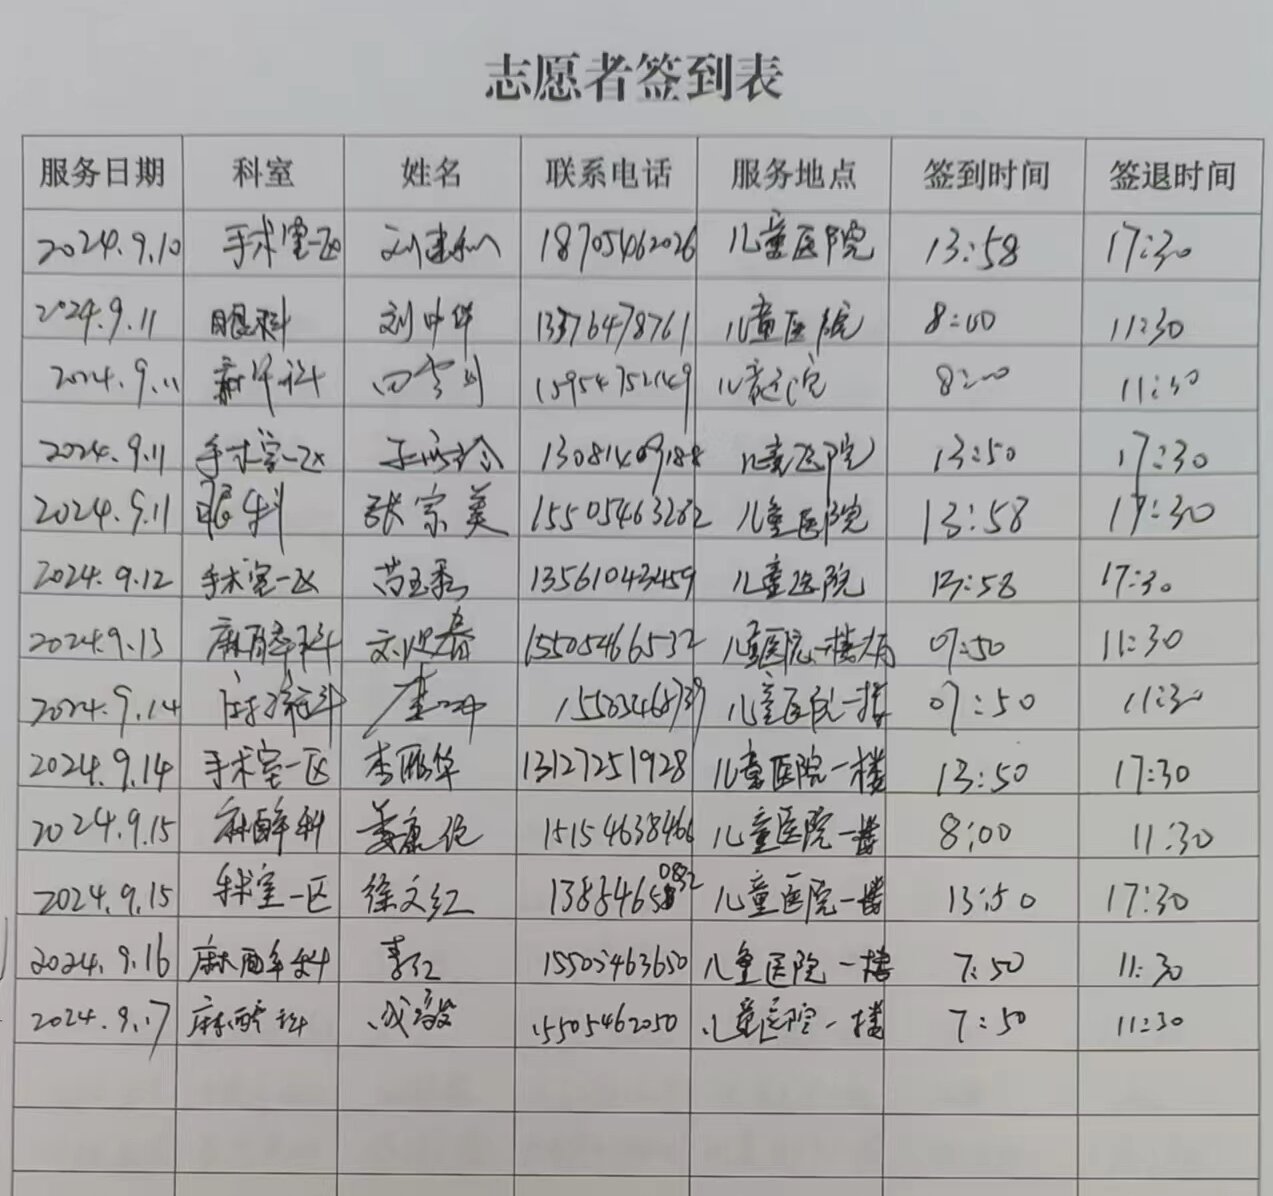 志愿者签到表
服务日期 科室 姓名 联系电话 服务地点 签到时间 签退时间
2024.9.10 手术室一区 刘建 18705462026 儿童医院 13:58 17:30
2024.9.11 眼科 刘中华 13376478761 儿童医院 8:00 11:30
2024.9.11 麻醉科 儿童医院 8:00 11:30
2024.9.11 手术室一区 儿童医院 13:50 17:30
2024.9.11 眼科 张宗美 15505463282 儿童医院 13:58 17:30
2024.9.12 手术室一区 13561043459 儿童医院 13:58 17:30
2024.9.13 麻醉科 刘迎春 15505466532 儿童医院一楼 07:50 11:30
2024.9.14 儿童医院一楼 07:50 11:30
2024.9.14 手术室一区 李丽华 13127251928 儿童医院一楼 13:50 17:30
2024.9.15 麻醉科 姜康 15154638466 儿童医院一楼 8:00 11:30
2024.9.15 手术室一区 徐文红 儿童医院一楼 13:50 17:30
2024.9.16 麻醉科 李红 15505463650 儿童医院一楼 7:50 11:30
2024.9.17 麻醉科 15505462050 儿童医院一楼 7:50 11:30